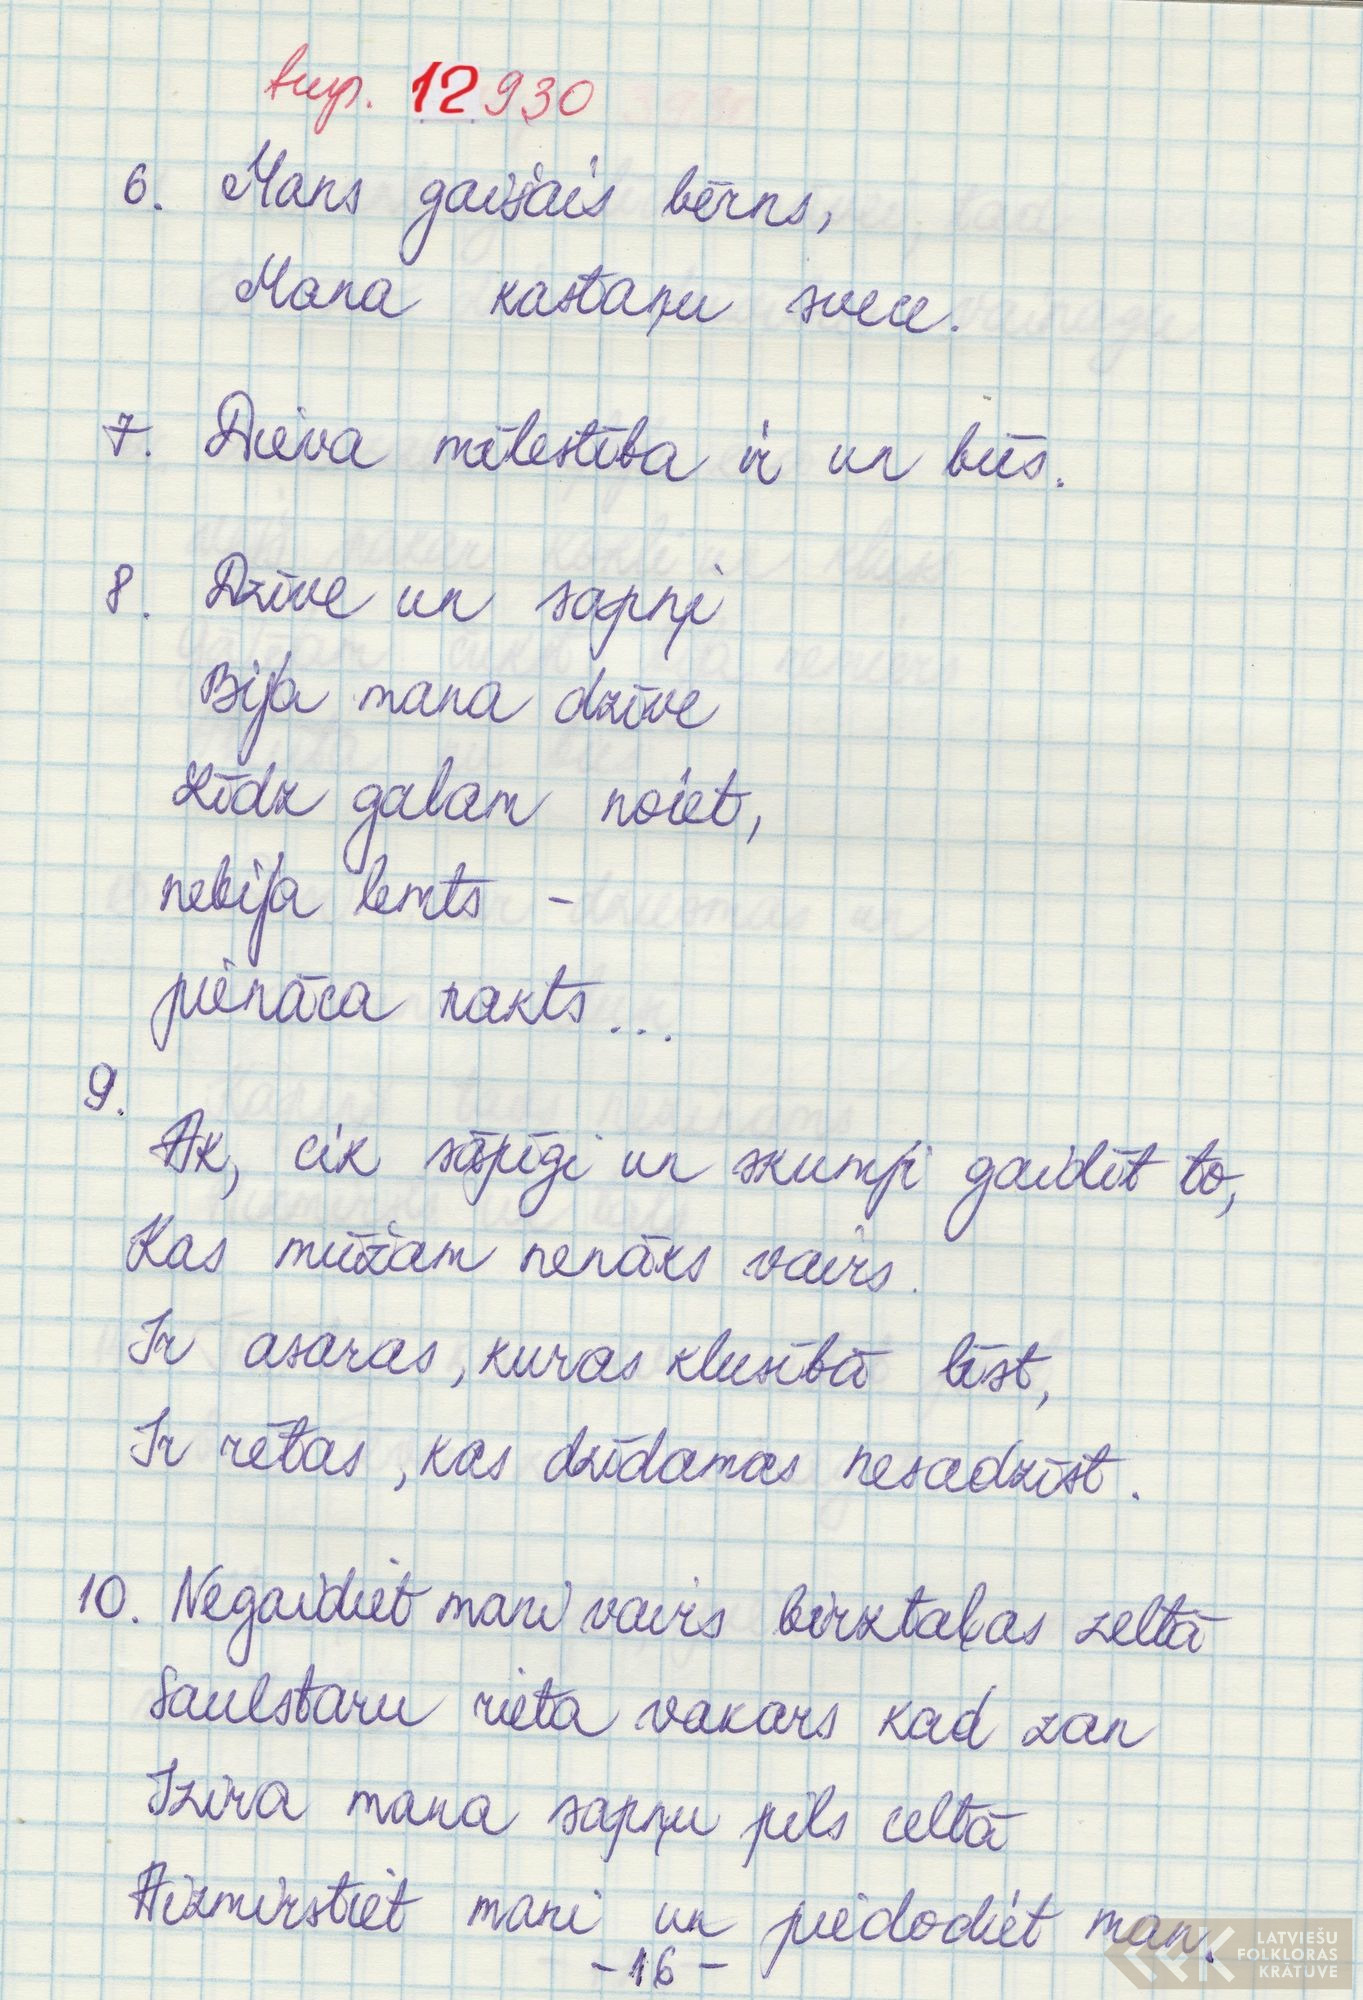 turp. 12930
6. Mans gaišais bērns,
Mana kastaņu svece.
7. Dieva mīlestība ir un būs.
8. Dzīve un sapņi
Bija mana dzīve
Līdz galam noiet,
nebija lemts -
pienāca nakts...
9.
Ak, cik sāpīgi un skumji gaidīt to,
Kas mūžam nenāks vairs.
Ir asaras, kuras klusībā līst,
Ir rētas, kas dzīdamas nesadzīst.
10. Negaidiet mani vairs birztalas zeltā
Saulstaru rieta vakars kad zan
Izira mana sapņu pils celtā
Aizmirstiet mani un piedodiet man.
- 16 -
LATVIEŠU
FOLKLORAS
KRĀTUVE